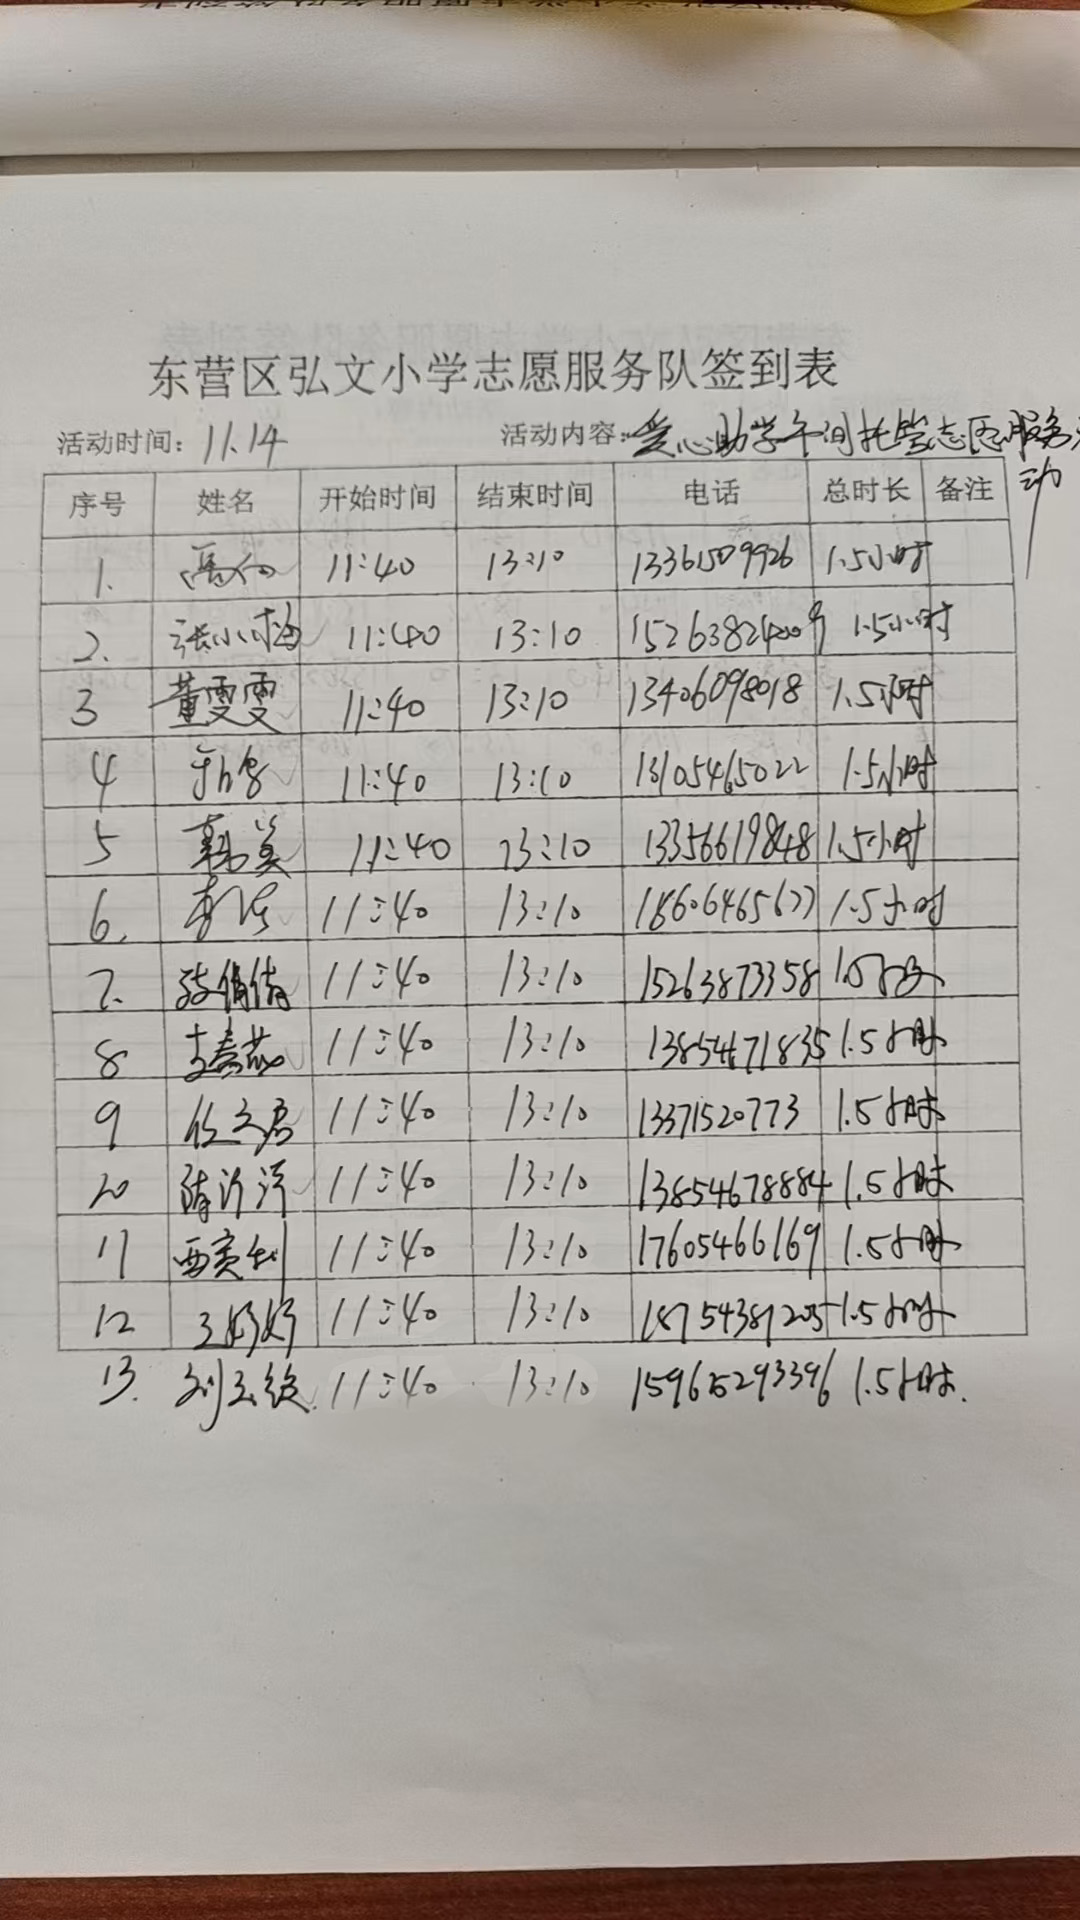 东营区弘文小学志愿服务队签到表
活动时间：11.14 活动内容：爱心助学午间托管志愿服务活动
序号 姓名 开始时间 结束时间 电话 总时长 备注
1. 11:40 13:10 13361509926 1.5小时
2. 张小梅 11:40 13:10 1.5小时
3 董雯雯 11:40 13:10 13406098018 1.5小时
4 11:40 13:10 13105465022 1.5小时
5 韩英 11:40 13:10 13356619848 1.5小时
6. 11:40 13:10 18606465677 1.5小时
7. 倩倩 11:40 13:10 15263873358 1.5小时
8 11:40 13:10 13854671835 1.5小时
9 任文君 11:40 13:10 1.5小时
10 11:40 13:10 13854678884 1.5小时
11 11:40 13:10 17605466169 1.5小时
12 王婷婷 11:40 13:10 18754387205 1.5小时
13. 刘 11:40 13:10 1.5小时.